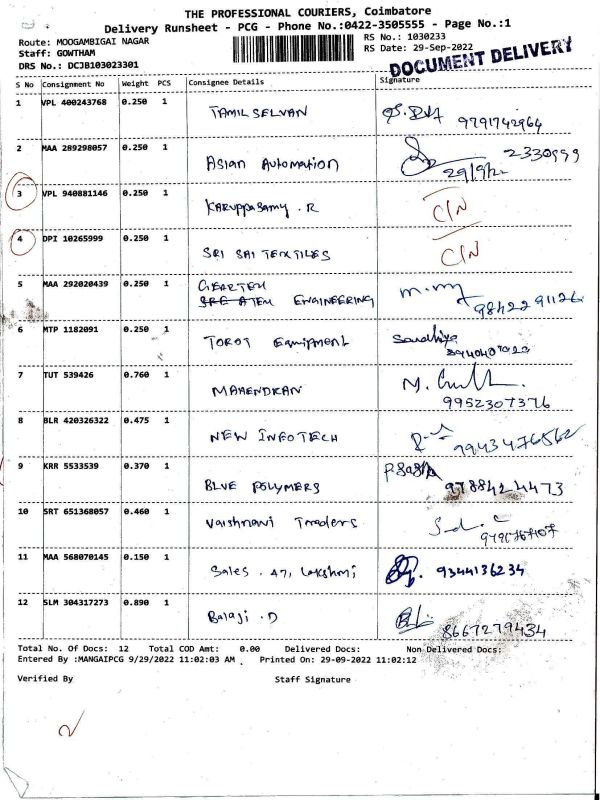 THE PROFESSIONAL COURIERS, Coimbatore
Delivery Runsheet - PCG - Phone No.:0422-3505555 - Page No.:1
Route: MOOGAMBIGAI NAGAR
RS No.: 1030233
Staff: GOWTHAM
RS Date: 29-Sep-2022
DRS No.: DCJB103023301
DOCUMENT DELIVERY
S No Consignment No Weight PCS Consignee Details Signature
1 VPL 400243768 0.250 1 TAMIL SELVAN 9791742964
2 MAA 289298057 0.250 1 Asian Automation 2330999
29/9/22
3 VPL 940881146 0.250 1 KARUPPASAMY . R C/N
4 DPI 10265999 0.250 1 SRI SAI TEXTILES C/N
5 MAA 292020439 0.250 1 GEARTEM
ENGINEERING 9842291126
6 MTP 1182091 0.250 1 TOROT Equipment Sandhiya
7 TUT 539426 0.760 1 MAHENDRAN
9952307376
8 BLR 420326322 0.475 1 NEW INFOTECH 9943476562
9 KRR 5533539 0.370 1 BLUE POLYMERS 9788424473
10 SRT 651368057 0.460 1 Vaishnavi Traders
11 MAA 568070145 0.150 1 Sales . 47, Lakshmi 9344136234
12 SLM 304317273 0.890 1 Balaji . D 8667279434
Total No. Of Docs: 12 Total COD Amt: 0.00 Delivered Docs: Non Delivered Docs:
Entered By :MANGAIPCG 9/29/2022 11:02:03 AM Printed On: 29-09-2022 11:02:12
Verified By Staff Signature
2